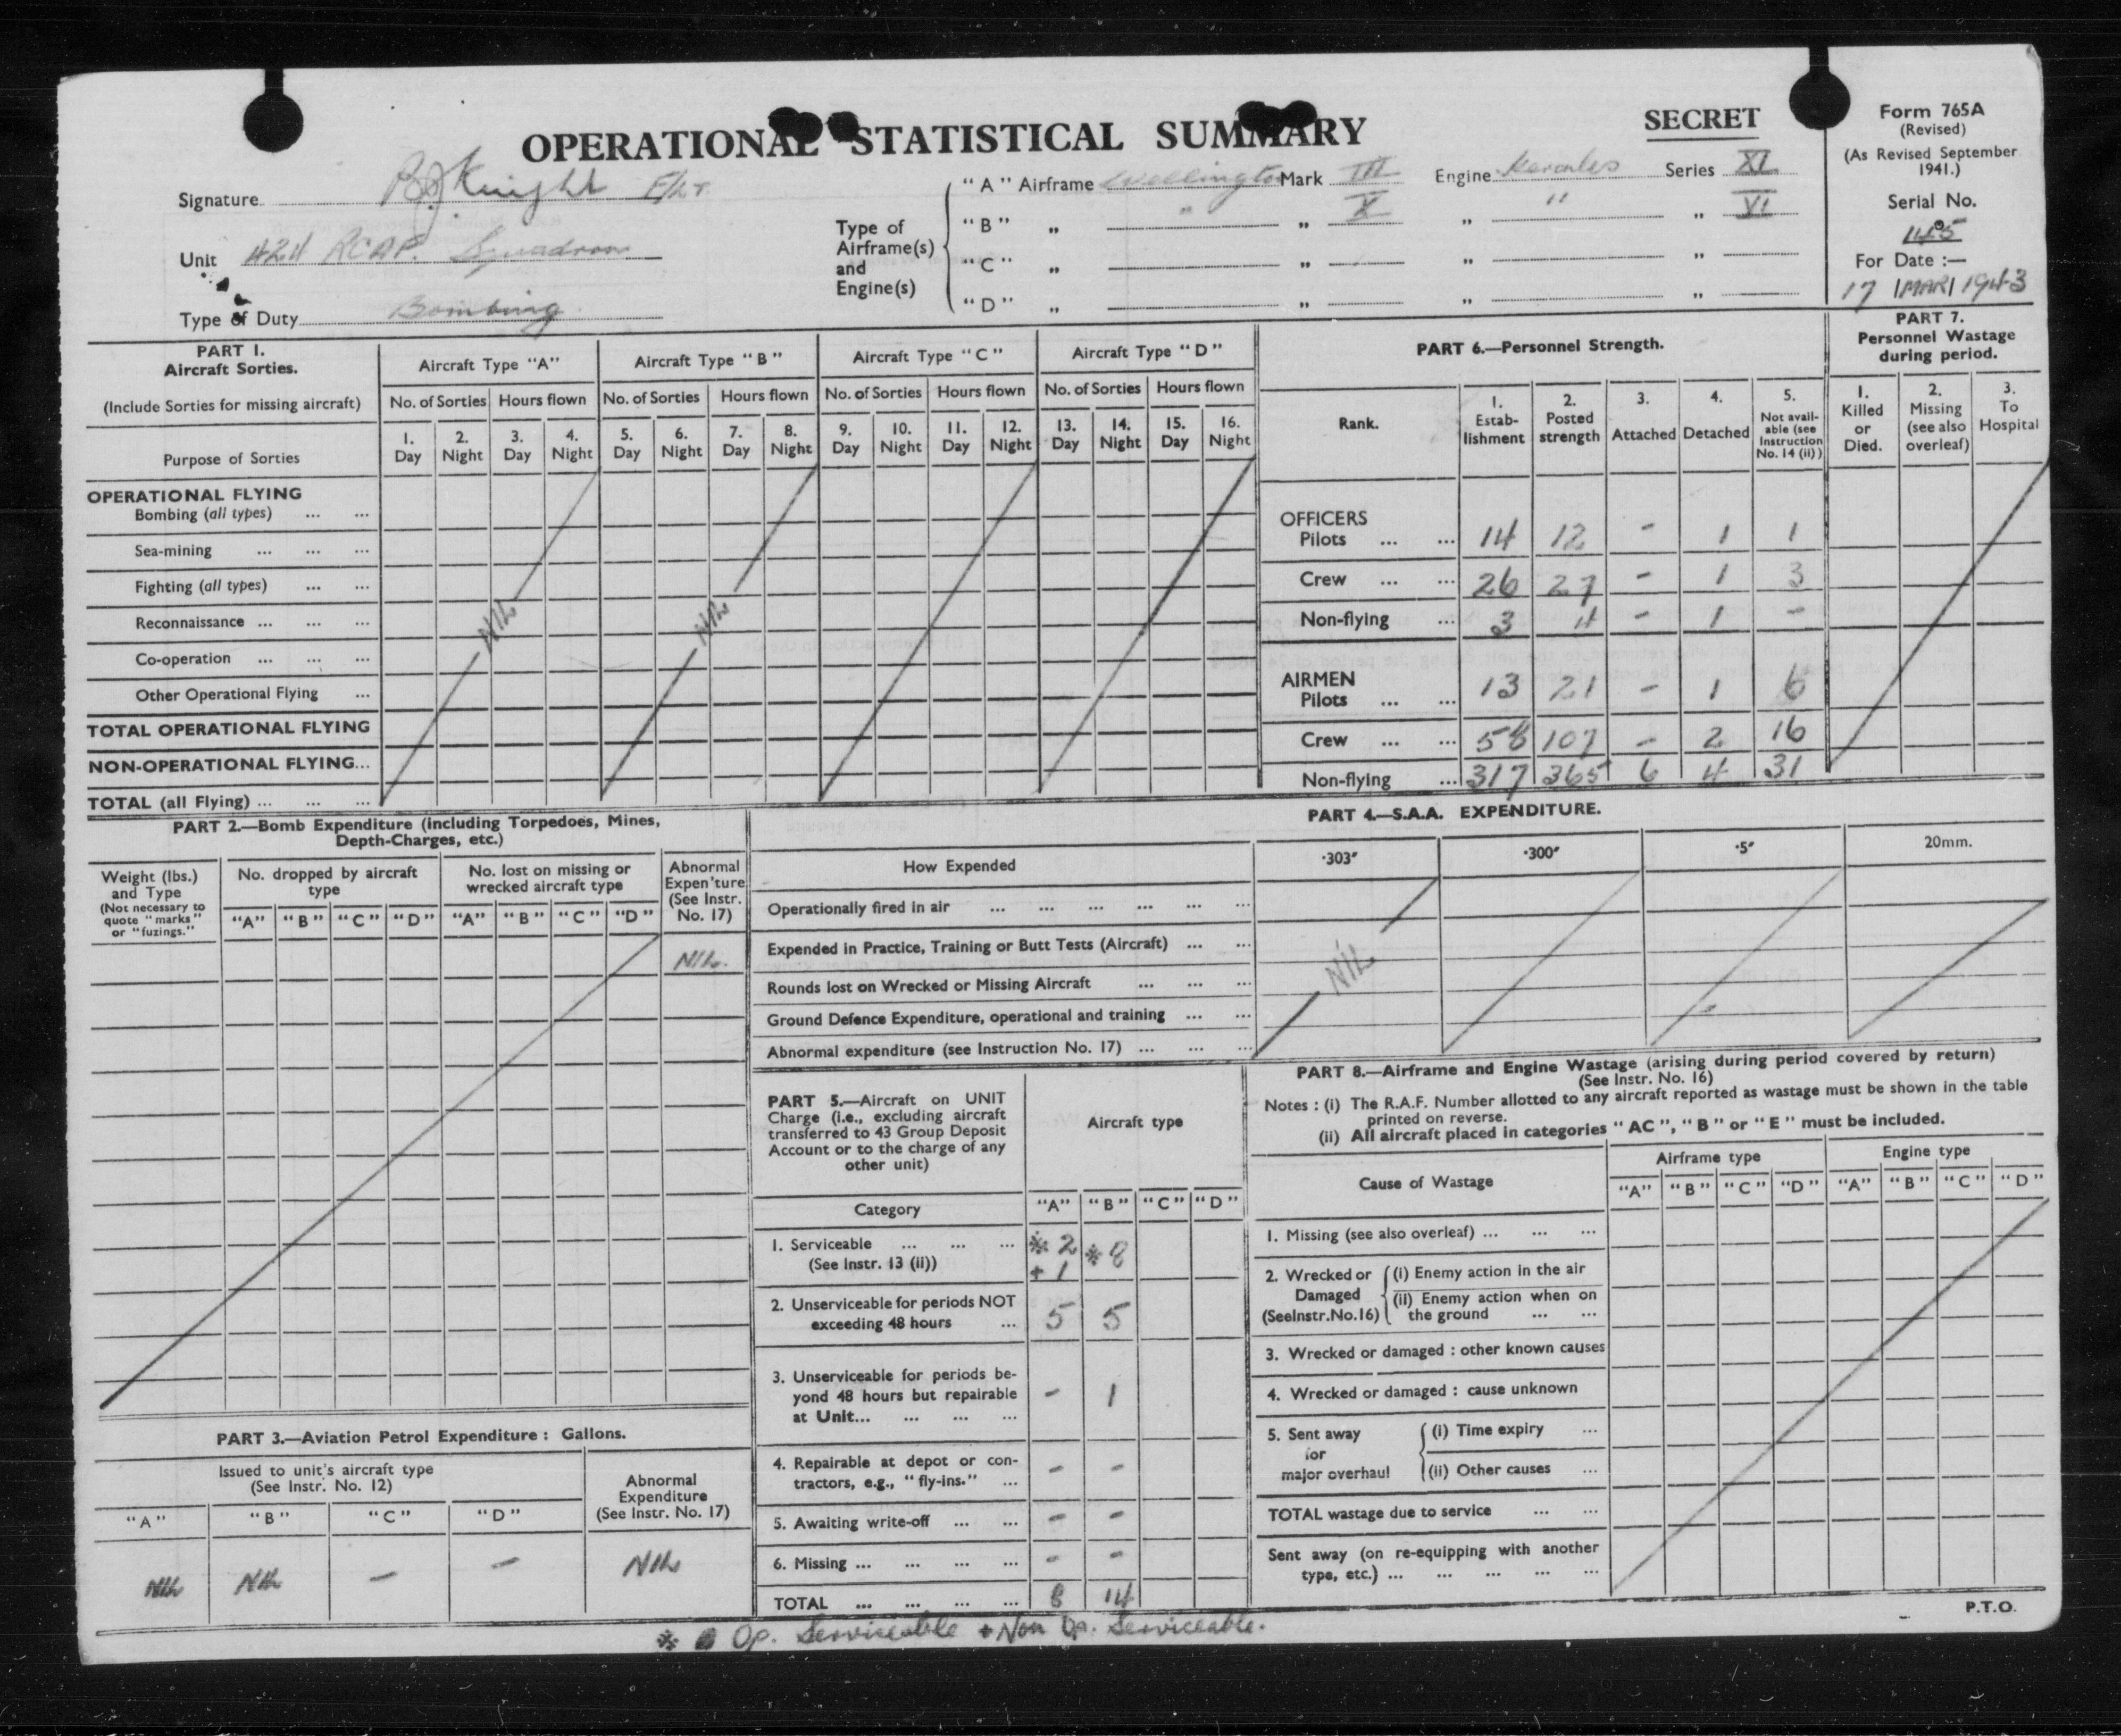 OPERATIONAL STATISTICAL SUMMARY
SECRET
Form 765A
(Revised)
(As Revised September
1941.)
Serial No.
145
For Date :—
17 MAR 1943
Signature Knight F/Lt.
Unit 424 RCAF. Squadron
Type of Duty Bombing
Type of
Airframe(s)
and
Engine(s)
"A" Airframe Wellington Mark III Engine Hercules Series XI
"B" „ " „ X „ " „ VI
"C" „ „ „ „
"D" „ „ „ „
PART 1.
Aircraft Sorties.
(Include Sorties for missing aircraft)
Purpose of Sorties
Aircraft Type "A" Aircraft Type "B" Aircraft Type "C" Aircraft Type "D"
No. of Sorties Hours flown No. of Sorties Hours flown No. of Sorties Hours flown No. of Sorties Hours flown
1. 2. 3. 4. 5. 6. 7. 8. 9. 10. 11. 12. 13. 14. 15. 16.
Day Night Day Night Day Night Day Night Day Night Day Night Day Night Day Night
OPERATIONAL FLYING
Bombing (all types) ... ...
Sea-mining ... ... ...
Fighting (all types) ... ...
Reconnaissance ... ... ...
NIL NIL
Co-operation ... ... ...
Other Operational Flying ...
TOTAL OPERATIONAL FLYING
NON-OPERATIONAL FLYING...
TOTAL (all Flying) ... ... ...
PART 6.—Personnel Strength.
Rank.
1. Estab-lishment
2. Posted strength
3. Attached
4. Detached
5. Not avail-able (see Instruction No. 14 (ii))
OFFICERS
Pilots ... ... 14 12 - 1 1
Crew ... ... 26 27 - 1 3
Non-flying ... 3 4 - 1 -
AIRMEN
Pilots ... ... 13 21 - 1 6
Crew ... ... 58 107 - 2 16
Non-flying ... 317 365 6 4 31
PART 7.
Personnel Wastage
during period.
1. Killed or Died.
2. Missing (see also overleaf)
3. To Hospital
PART 2.—Bomb Expenditure (including Torpedoes, Mines,
Depth-Charges, etc.)
Weight (lbs.)
and Type
(Not necessary to
quote "marks"
or "fuzings."
No. dropped by aircraft
type
No. lost on missing or
wrecked aircraft type
Abnormal
Expen'ture
(See Instr.
No. 17)
"A" "B" "C" "D" "A" "B" "C" "D"
NIL.
PART 3.—Aviation Petrol Expenditure : Gallons.
Issued to unit's aircraft type
(See Instr. No. 12)
Abnormal
Expenditure
(See Instr. No. 17)
"A" "B" "C" "D"
NIL NIL — — NIL
PART 4.—S.A.A. EXPENDITURE.
How Expended ·303" ·300" ·5" 20mm.
Operationally fired in air ... ... ... ... ... ...
Expended in Practice, Training or Butt Tests (Aircraft) ... ...
NIL
Rounds lost on Wrecked or Missing Aircraft ... ... ...
Ground Defence Expenditure, operational and training ... ...
Abnormal expenditure (see Instruction No. 17) ... ... ...
PART 5.—Aircraft on UNIT
Charge (i.e., excluding aircraft
transferred to 43 Group Deposit
Account or to the charge of any
other unit)
Aircraft type
Category "A" "B" "C" "D"
1. Serviceable ... ... ... ※ 2 ※ 8
(See Instr. 13 (ii)) + 1
2. Unserviceable for periods NOT
exceeding 48 hours ... 5 5
3. Unserviceable for periods be-
yond 48 hours but repairable - 1
at Unit... ... ... ...
4. Repairable at depot or con-
tractors, e.g., "fly-ins." ... - -
5. Awaiting write-off ... ... - -
6. Missing ... ... ... ... - -
TOTAL ... ... ... ... 8 14
PART 8.—Airframe and Engine Wastage (arising during period covered by return)
(See Instr. No. 16)
Notes : (i) The R.A.F. Number allotted to any aircraft reported as wastage must be shown in the table
printed on reverse.
(ii) All aircraft placed in categories "AC", "B" or "E" must be included.
Cause of Wastage
Airframe type Engine type
"A" "B" "C" "D" "A" "B" "C" "D"
1. Missing (see also overleaf) ... ... ...
2. Wrecked or Damaged (SeeInstr.No.16)
(i) Enemy action in the air
(ii) Enemy action when on
the ground ... ...
3. Wrecked or damaged : other known causes
4. Wrecked or damaged : cause unknown
5. Sent away for major overhaul
(i) Time expiry ...
(ii) Other causes ...
TOTAL wastage due to service ... ...
Sent away (on re-equipping with another
type, etc.) ... ... ... ... ...
P.T.O.
※ Op. Serviceable + Non Op. Serviceable.